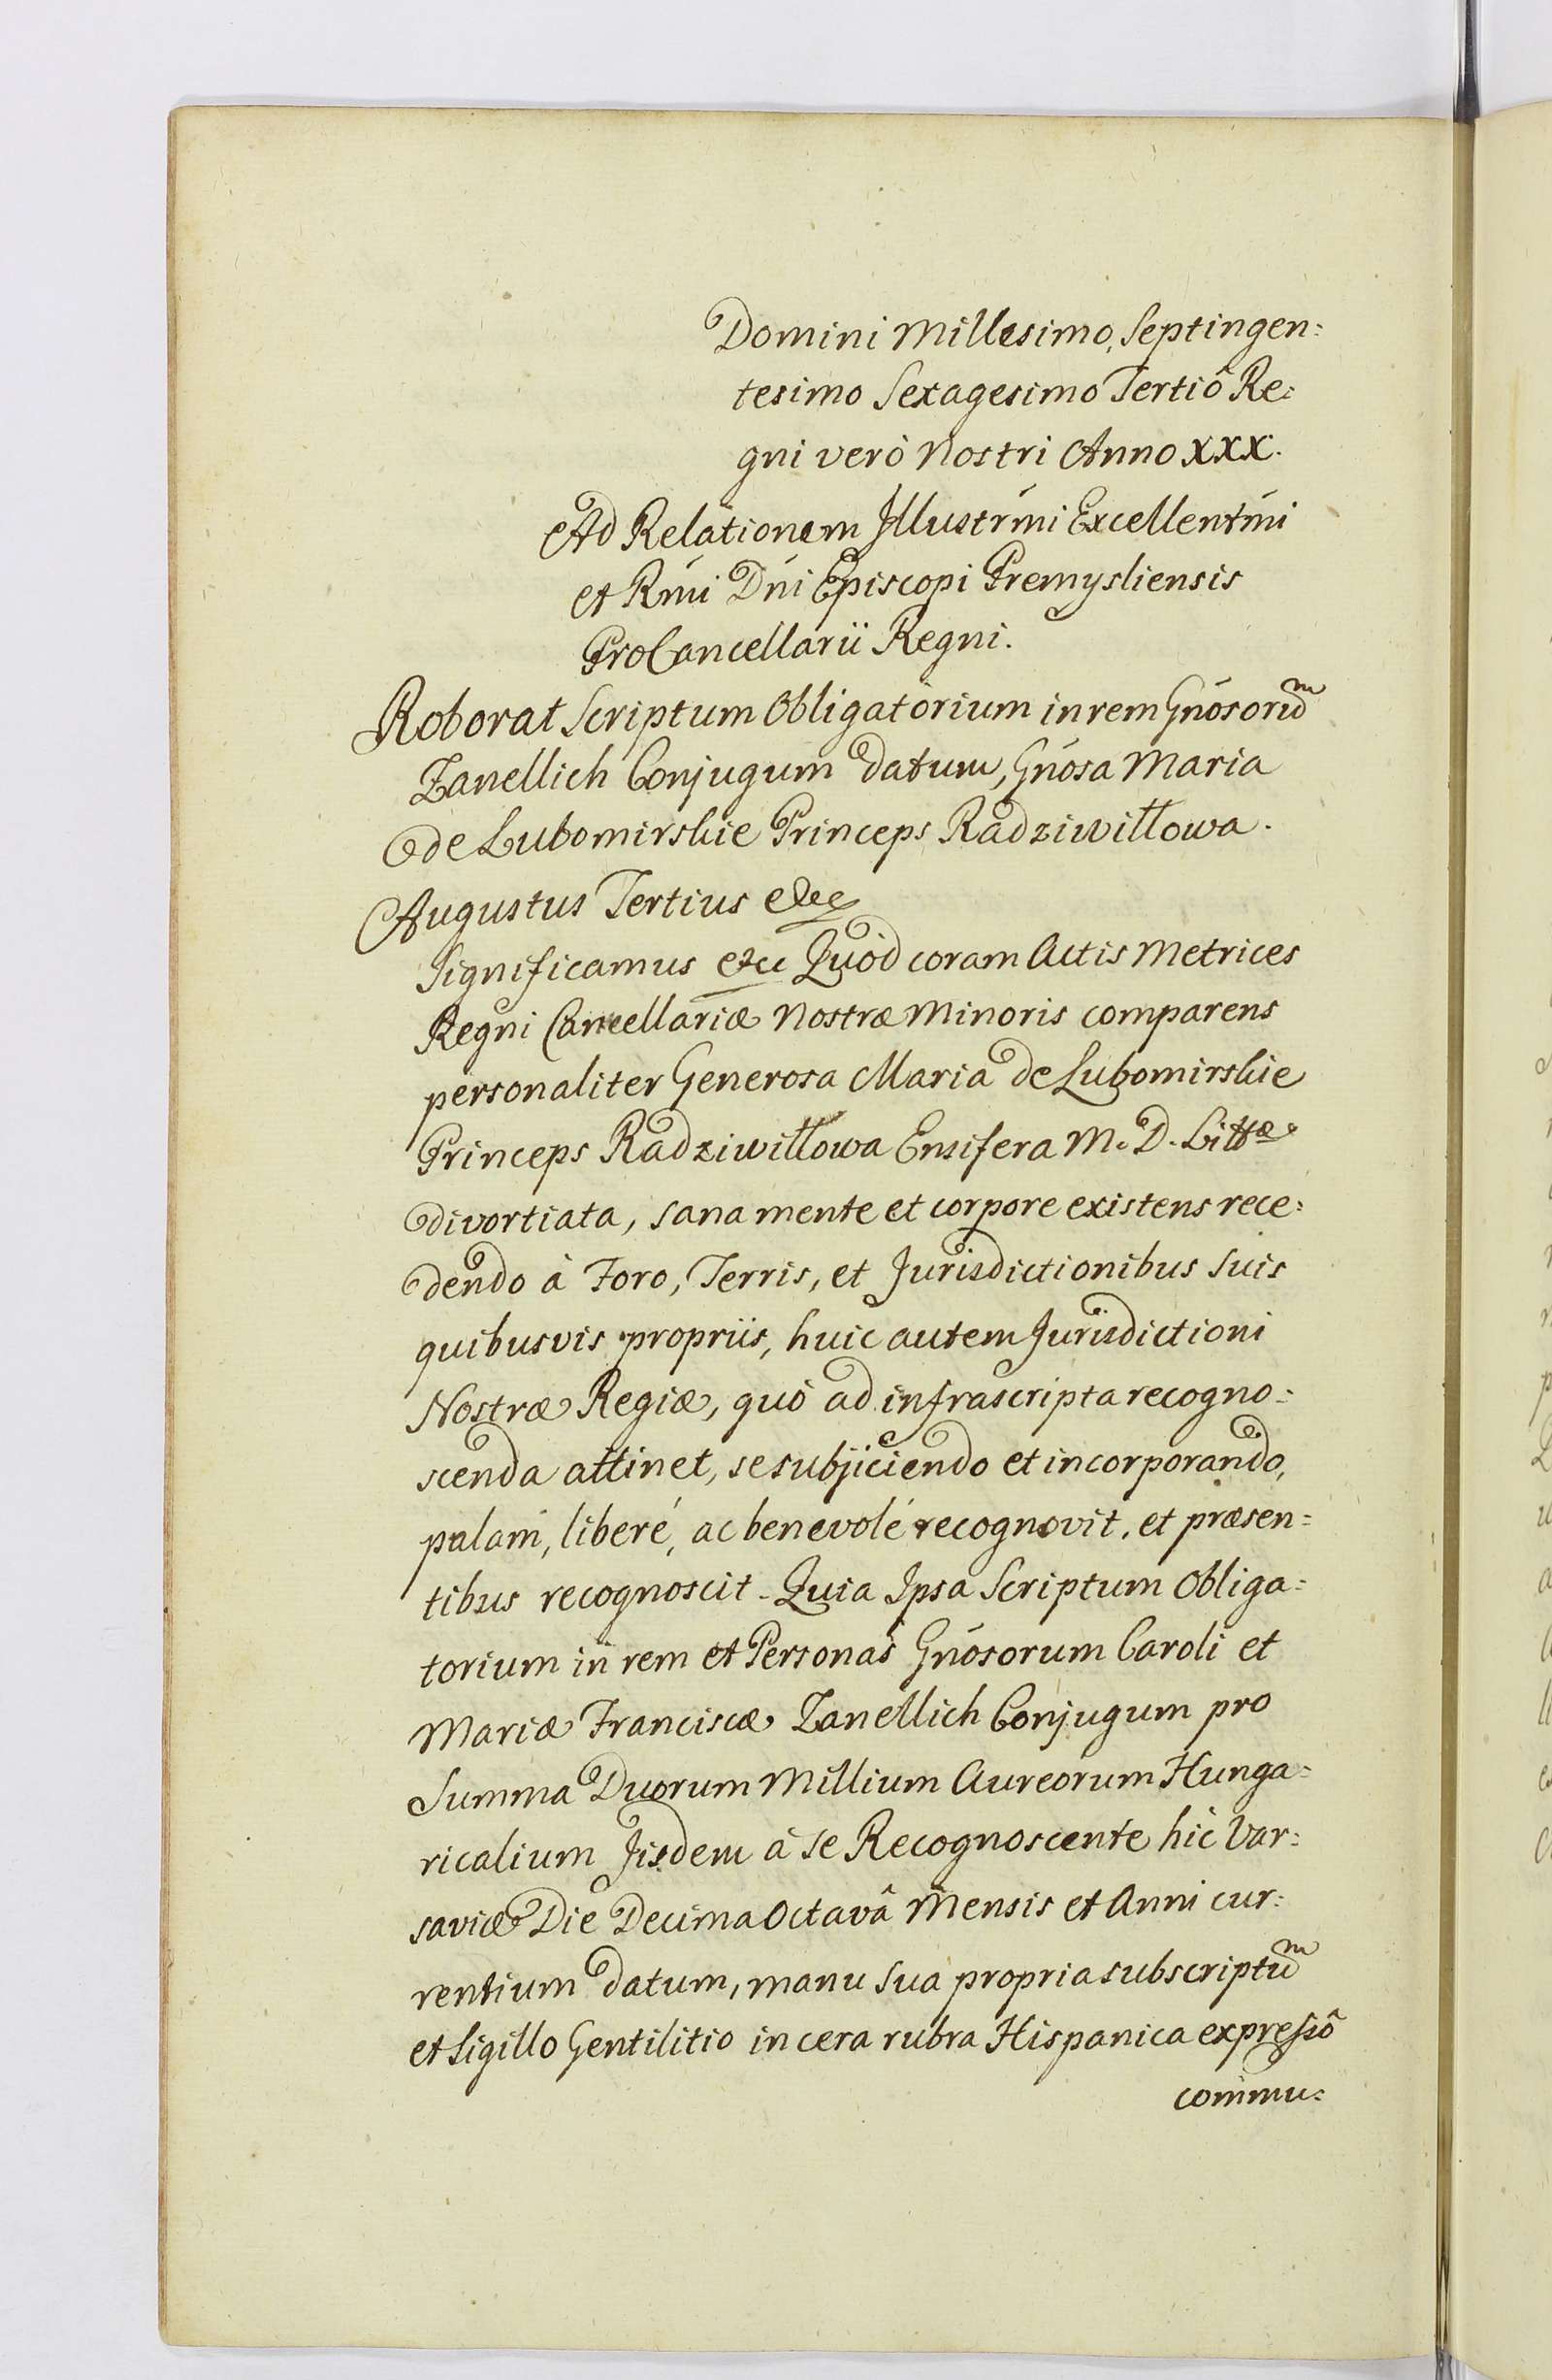 Domini Millesimo, Septingen:
tesimo Sexagesimo Tertiô Re:
gni verò Nostri Anno XXX.
Ad Relationem Illustrḿi Excellentḿi
et Rḿi Dńi Episcopi Premysliensis
ProCancellarii Regni.
Roborat Scriptum Obligatorium in rem Gńosorūm
Zanellich Conjugum datum, Gńosa Maria
de Lubomirskie Princeps Radziwiłłowa.
Augustus Tertius etc
Significamus etc Quòd coram Actis Metrices
Regni Cancellariæ Nostræ Minoris comparens
personaliter Generosa Maria de Lubomirskie
Princeps Radziwiłłowa Ensifera M. D. Littæ
divortiata, sana mente et corpore existens rece:
dendo à Foro, Terris, et Jurisdictionibus suis
quibusvis propriis, huic autem Jurisdictioni
Nostræ Regiæ, quò ad infrascripta recogno:
scenda attinet, se subjiciendo et incorporando,
palam, liberé, ac benevolé recognovit, et præsen:
tibus recognoscit. Quia Ipsa Scriptum Obliga:
torium in rem et Personas Gńosorum Caroli et
Mariæ Franciscæ Zanellich Conjugum pro
Summa Duorum Millium Aureorum Hunga:
ricalium Iisdem à se Recognoscente hic Var:
saviæ Die Decima Octavâ Mensis et Anni cur:
rentium datum, manu sua propria subscriptūm
et Sigillo Gentilitio in cera rubra Hispanica expressô
commu: